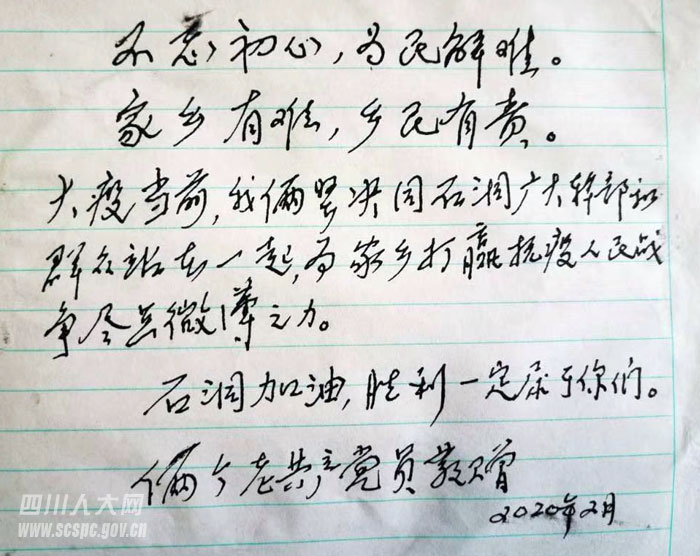 不忘初心，为民解难。
家乡有难，乡民有责。
大疫当前，我俩坚决同石洞广大幹部和
群众站在一起，为家乡打赢抗疫人民战
争尽点微薄之力。
石洞加油，胜利一定属于你们。
俩个老共产党员敬赠
2020年2月
四川人大网
www.scspc.gov.cn